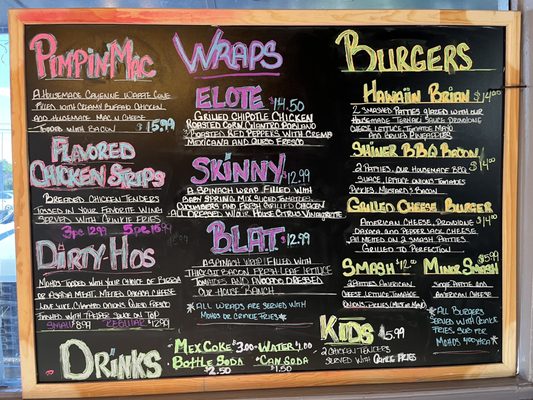 PIMPIN MAC
A HOUSEMADE CAYENNE WAFFLE CONE
FILLED WITH CREAMY BUFFALO CHICKEN
AND HOUSEMADE MAC N CHEESE
TOPPED WITH BACON $15.99
FLAVORED
CHICKEN STRIPS
BREADED CHICKEN TENDERS
TOSSED IN YOUR FAVORITE WING
SERVED WITH CRINKLE FRIES
3pc 12.99 5pc 15.99
DIRTY-HOS
MOHOS TOPPED WITH YOUR CHOICE OF
OR MEAT, MELTED CHEESE
TOPPED WITH ON TOP
SMALL 8.99 REGULAR 12.99
WRAPS
ELOTE $14.50
GRILLED CHIPOTLE CHICKEN
ROASTED CORN CILANTRO POBLANO
ROASTED RED PEPPERS WITH CREMA
MEXICANA AND QUESO FRESCO
SKINNY $12.99
A SPINACH WRAP FILLED WITH
BABY SPRING MIX SLICED TOMATOES
CUCUMBERS AND FRESH GRILLED CHICKEN
ALL DRESSED W/OUR HOUSE CITRUS VINAIGRETTE
BLAT $12.99
A SPINACH WRAP FILLED WITH
THICK CUT BACON FRESH LEAF LETTUCE
TOMATOES AND AVOCADO DRESSED
OUR HOUSE RANCH
*ALL WRAPS ARE SERVED WITH
MOHOS OR CRINKLE FRIES*
BURGERS
HAWAIIN BRIAN $14.00
2 SMASHED PATTIES GLAZED WITH OUR
HOUSEMADE TERIYAKI SAUCE PROVOLONE
CHEESE LETTUCE TOMATO MAYO
AND GRILLED PINEAPPLES
SHINER BBQ BACON $14.00
2 PATTIES, OUR HOUSEMADE BBQ
SAUCE LETTUCE ONIONS TOMATOES
PICKLES, MUSTARD & BACON
GRILLED CHEESE BURGER $14.00
AMERICAN CHEESE, PROVOLONE
OAXACA, AND PEPPERJACK CHEESE
ALL MELTED ON 2 SMASH PATTIES
GRILLED TO PERFECTION
SMASH $12.00
2 PATTIES AMERICAN
CHEESE LETTUCE TOMATOE
ONIONS, PICKLES, MUSTARD MAYO
MINOR SMASH $5.99
SINGLE PATTIE AND
AMERICAN CHEESE
*ALL BURGERS
SERVED WITH CRINKLE
FRIES SUB FOR
MOHOS
KIDS $5.99
2 CHICKEN TENDERS
SERVED WITH CRINKLE FRIES
DRINKS
MEX COKE $3.00 WATER $1.00
BOTTLE SODA CAN SODA
$2.50 $1.50